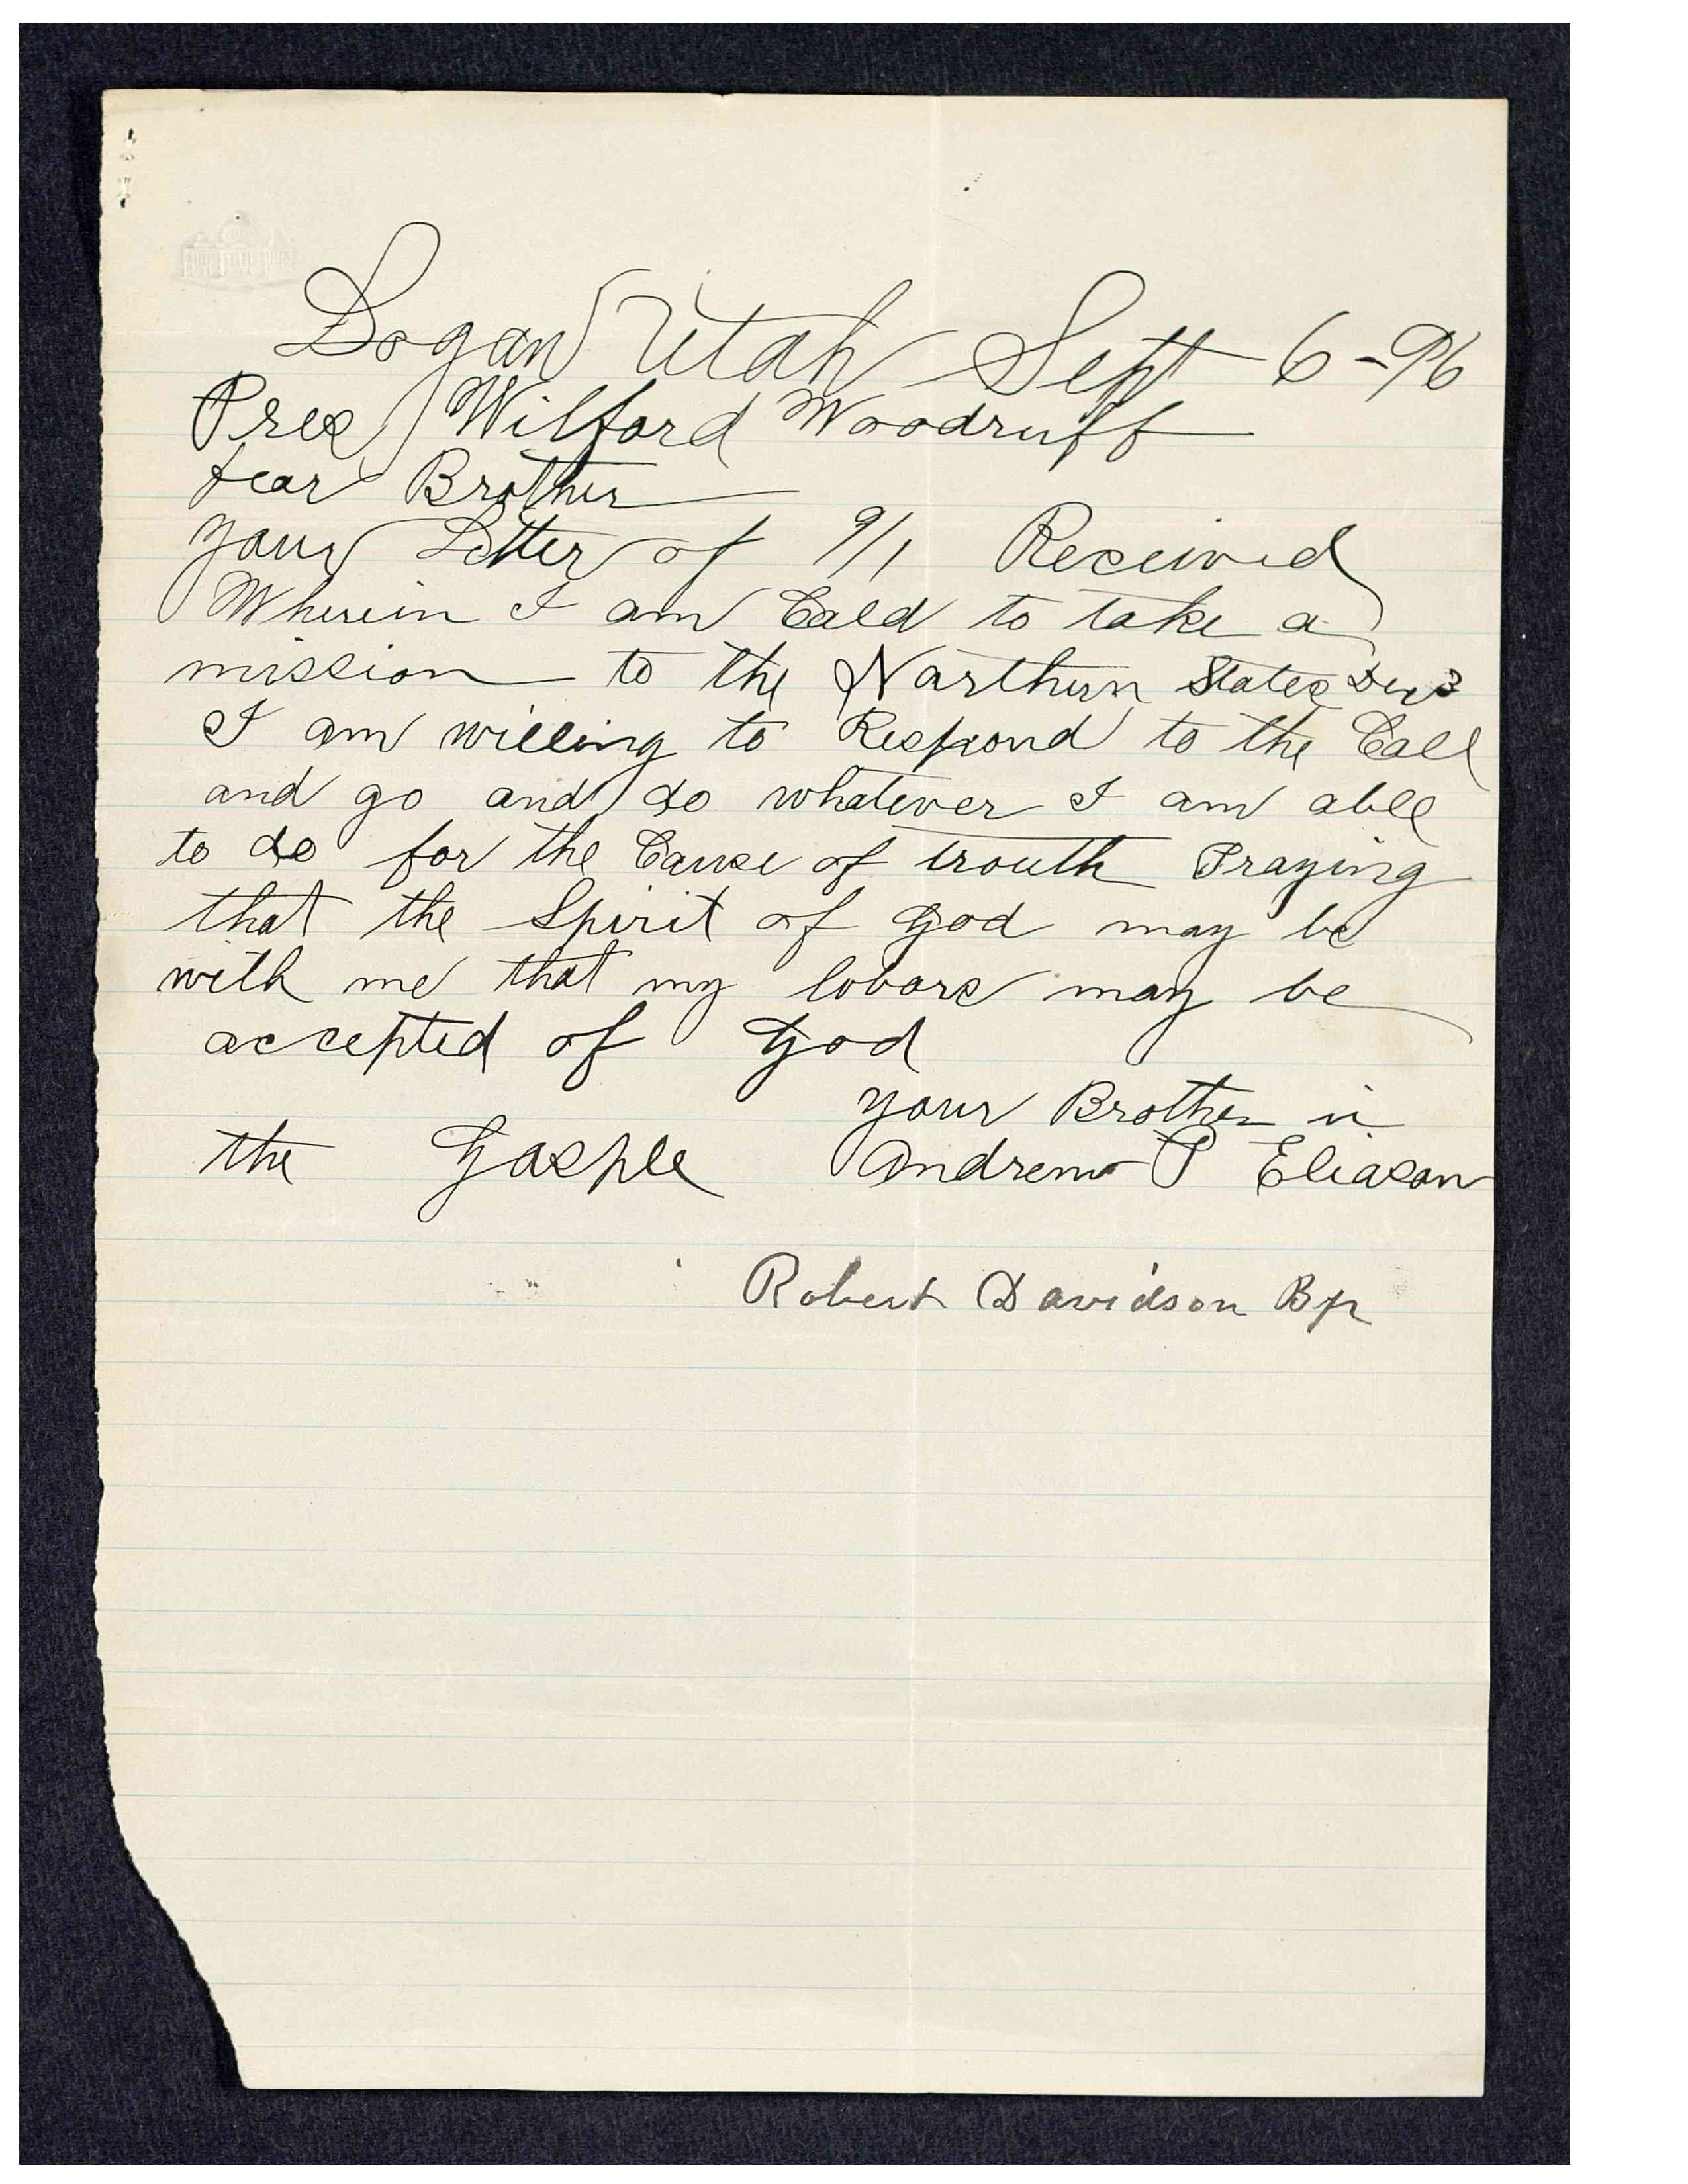 Logan Utah Sept 6-96
Pres Wilford Woodruff
dear Brother
your Letter of 9/1 Received
Wherein I am Cald to take a
mission to the Northern States Dec 3
I am willing to Respond to the Call
and go and do whatever I am able
to do for the Cause of trouth Praying
that the Spirit of God may be
with me that my lobors may be
accepted of God
your Brother in
the Gosple Andrew P Eliason
Robert Davidson Bp